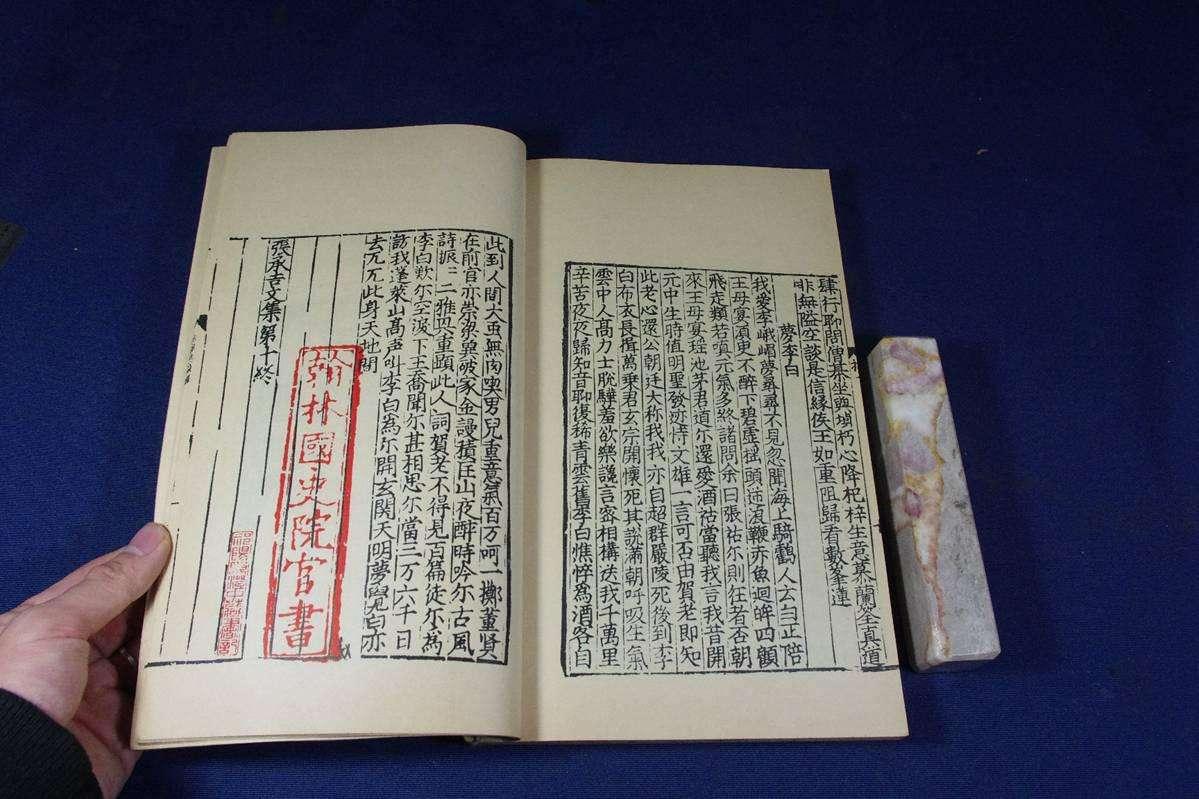 肆行聊問傳墓坐墳朽心降杞梓生意慕蘭荃真
非無隘空談是信緣侯王如重阻歸看數峯蓮
夢李白
我愛李峨嵋夢尋尋不見忽聞海上騎鶴人云白正陪
王母宴須臾不醉下碧虛搖頭逆浪鞭赤魚迴眸四顧
飛走類若嗔元氣多終諸問余曰張祐尓則狂者否朝
來王母宴瑶池茅君道尓還愛酒祐當聽我言我昔開
元中生時值明聖發迹恃文雄一言可否由賀老即知
此老心還公朝廷大称我我亦自超群嚴陵死後到李
白布衣長揖萬乗君玄宗開懷死其說滿朝呼吸生氣
雲中人高力士脫鞾羞欲樂讒言密相構送我千萬里
辛苦夜夜歸知音聊復稀青雲舊李白憔悴爲酒客自
此到人間大虫無肉喫男兒重意氣百万呵一擲董賢
在前官亦崇梁冀破家金謾積匡山夜醉時吟尓古風
詩二雅重顕此人詞賀老不得見百篇徒尓爲
李白歎尓空沒下王喬聞尓甚相思尓當三万六千日
訪我蓬萊山高声叫李白爲尓開玄関天明夢覺白亦
去兀兀此身天地間
張承吉文集第十終
翰林國史院官書